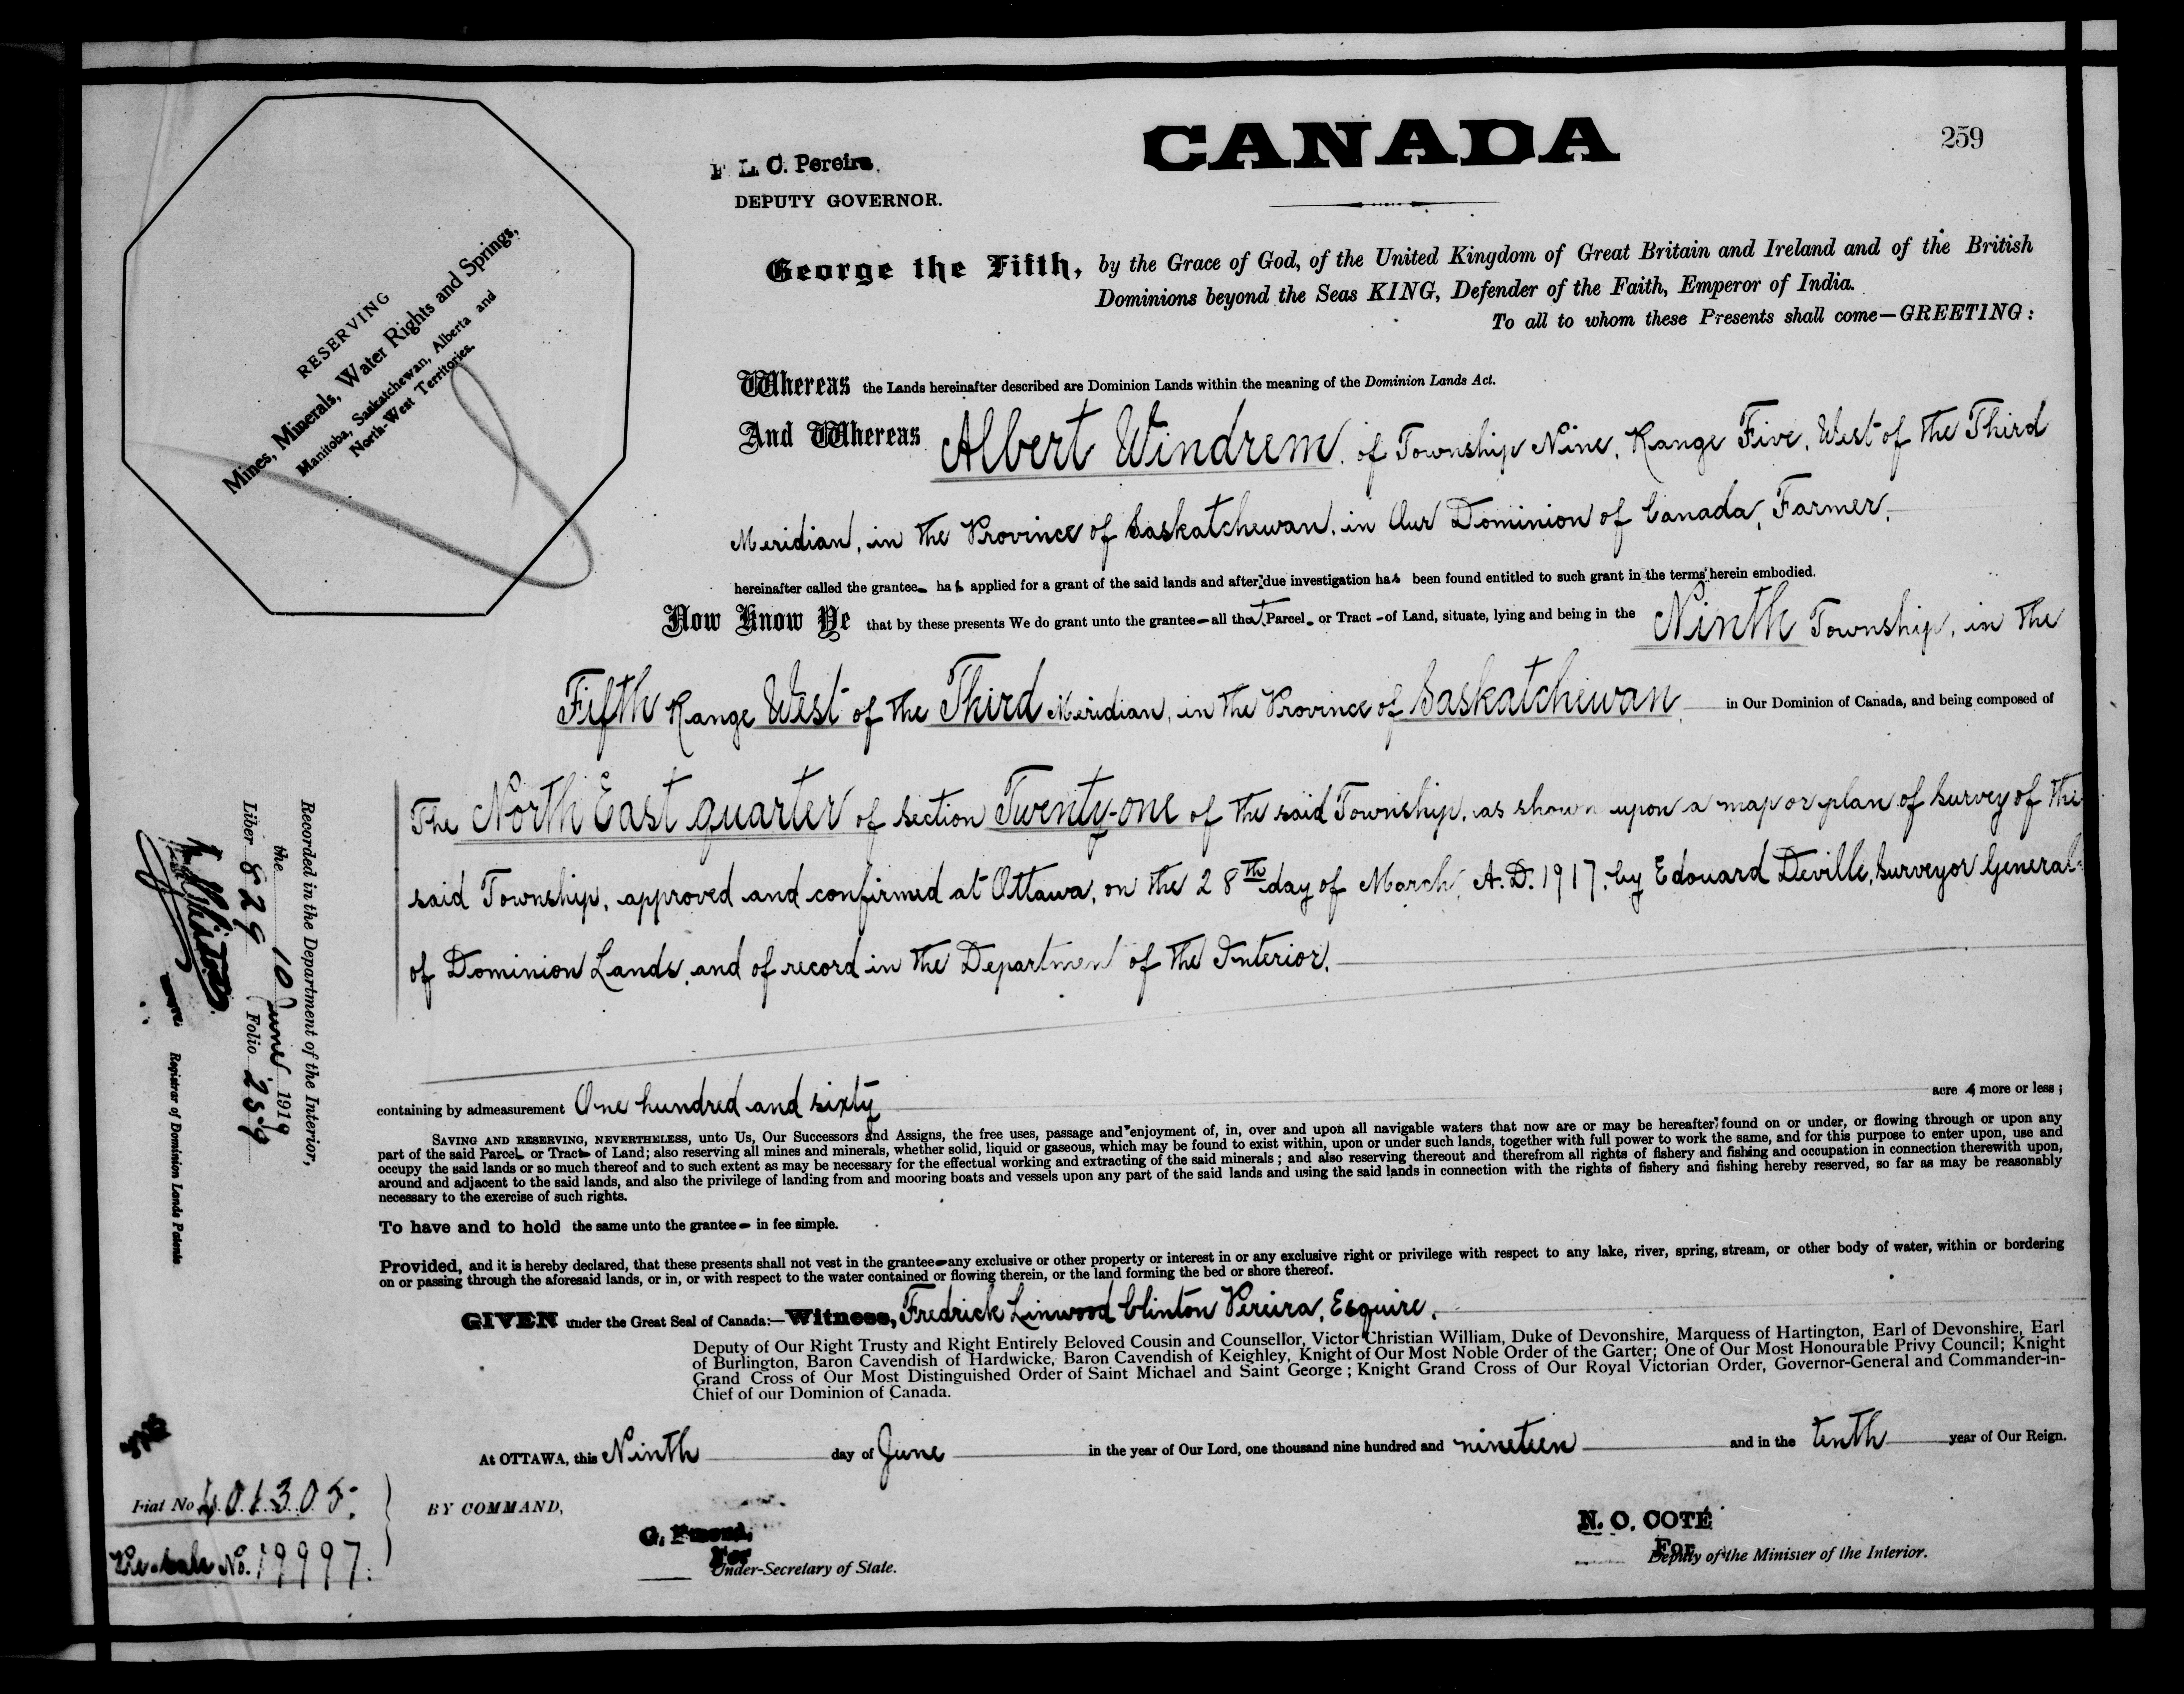 CANADA
259
F L. C. Pereira.
DEPUTY GOVERNOR.
RESERVING
Mines, Minerals, Water Rights and Springs,
Manitoba, Saskatchewan, Alberta and
North-West Territories.
George the Fifth, by the Grace of God, of the United Kingdom of Great Britain and Ireland and of the British
Dominions beyond the Seas KING, Defender of the Faith, Emperor of India.
To all to whom these Presents shall come—GREETING:
Whereas the Lands hereinafter described are Dominion Lands within the meaning of the Dominion Lands Act.
And Whereas Albert Windrem, of Township Nine, Range Five, West of the Third
Meridian, in the Province of Saskatchewan, in Our Dominion of Canada, Farmer,
hereinafter called the grantee has applied for a grant of the said lands and after due investigation has been found entitled to such grant in the terms herein embodied.
Now Know Ye that by these presents We do grant unto the grantee—all that Parcel or Tract of Land, situate, lying and being in the Ninth Township, in the
Fifth Range West of the Third Meridian, in the Province of Saskatchewan in Our Dominion of Canada, and being composed of
The North East quarter of section Twenty-one of the said Township, as shown upon a map or plan of survey of the
said Township, approved and confirmed at Ottawa, on the 28th day of March, A.D. 1917, by Edouard Deville, Surveyor General
of Dominion Lands, and of record in the Department of the Interior.
containing by admeasurement One hundred and sixty acres more or less;
SAVING AND RESERVING, NEVERTHELESS, unto Us, Our Successors and Assigns, the free uses, passage and enjoyment of, in, over and upon all navigable waters that now are or may be hereafter found on or under, or flowing through or upon any
part of the said Parcel or Tract of Land; also reserving all mines and minerals, whether solid, liquid or gaseous, which may be found to exist within, upon or under such lands, together with full power to work the same, and for this purpose to enter upon, use and
occupy the said lands or so much thereof and to such extent as may be necessary for the effectual working and extracting of the said minerals; and also reserving thereout and therefrom all rights of fishery and fishing and occupation in connection therewith upon,
around and adjacent to the said lands, and also the privilege of landing from and mooring boats and vessels upon any part of the said lands and using the said lands in connection with the rights of fishery and fishing hereby reserved, so far as may be reasonably
necessary to the exercise of such rights.
To have and to hold the same unto the grantee in fee simple.
Provided, and it is hereby declared, that these presents shall not vest in the grantee any exclusive or other property or interest in or any exclusive right or privilege with respect to any lake, river, spring, stream, or other body of water, within or bordering
on or passing through the aforesaid lands, or in, or with respect to the water contained or flowing therein, or the land forming the bed or shore thereof.
GIVEN under the Great Seal of Canada:—Witness, Fredrick Linwood Clinton Pereira, Esquire,
Deputy of Our Right Trusty and Right Entirely Beloved Cousin and Counsellor, Victor Christian William, Duke of Devonshire, Marquess of Hartington, Earl of Devonshire, Earl
of Burlington, Baron Cavendish of Hardwicke, Baron Cavendish of Keighley, Knight of Our Most Noble Order of the Garter; One of Our Most Honourable Privy Council; Knight
Grand Cross of Our Most Distinguished Order of Saint Michael and Saint George; Knight Grand Cross of Our Royal Victorian Order, Governor-General and Commander-in-
Chief of our Dominion of Canada.
At OTTAWA, this Ninth day of June in the year of Our Lord, one thousand nine hundred and nineteen and in the tenth year of Our Reign.
BY COMMAND,
G.
For
Under-Secretary of State.
N. O. COTÉ
For
Deputy of the Minister of the Interior.
Recorded in the Department of the Interior,
the 10 June 1919
Liber 829 Folio 259
Registrar of Dominion Lands Patents
Fiat No 401305.
No. 19997.